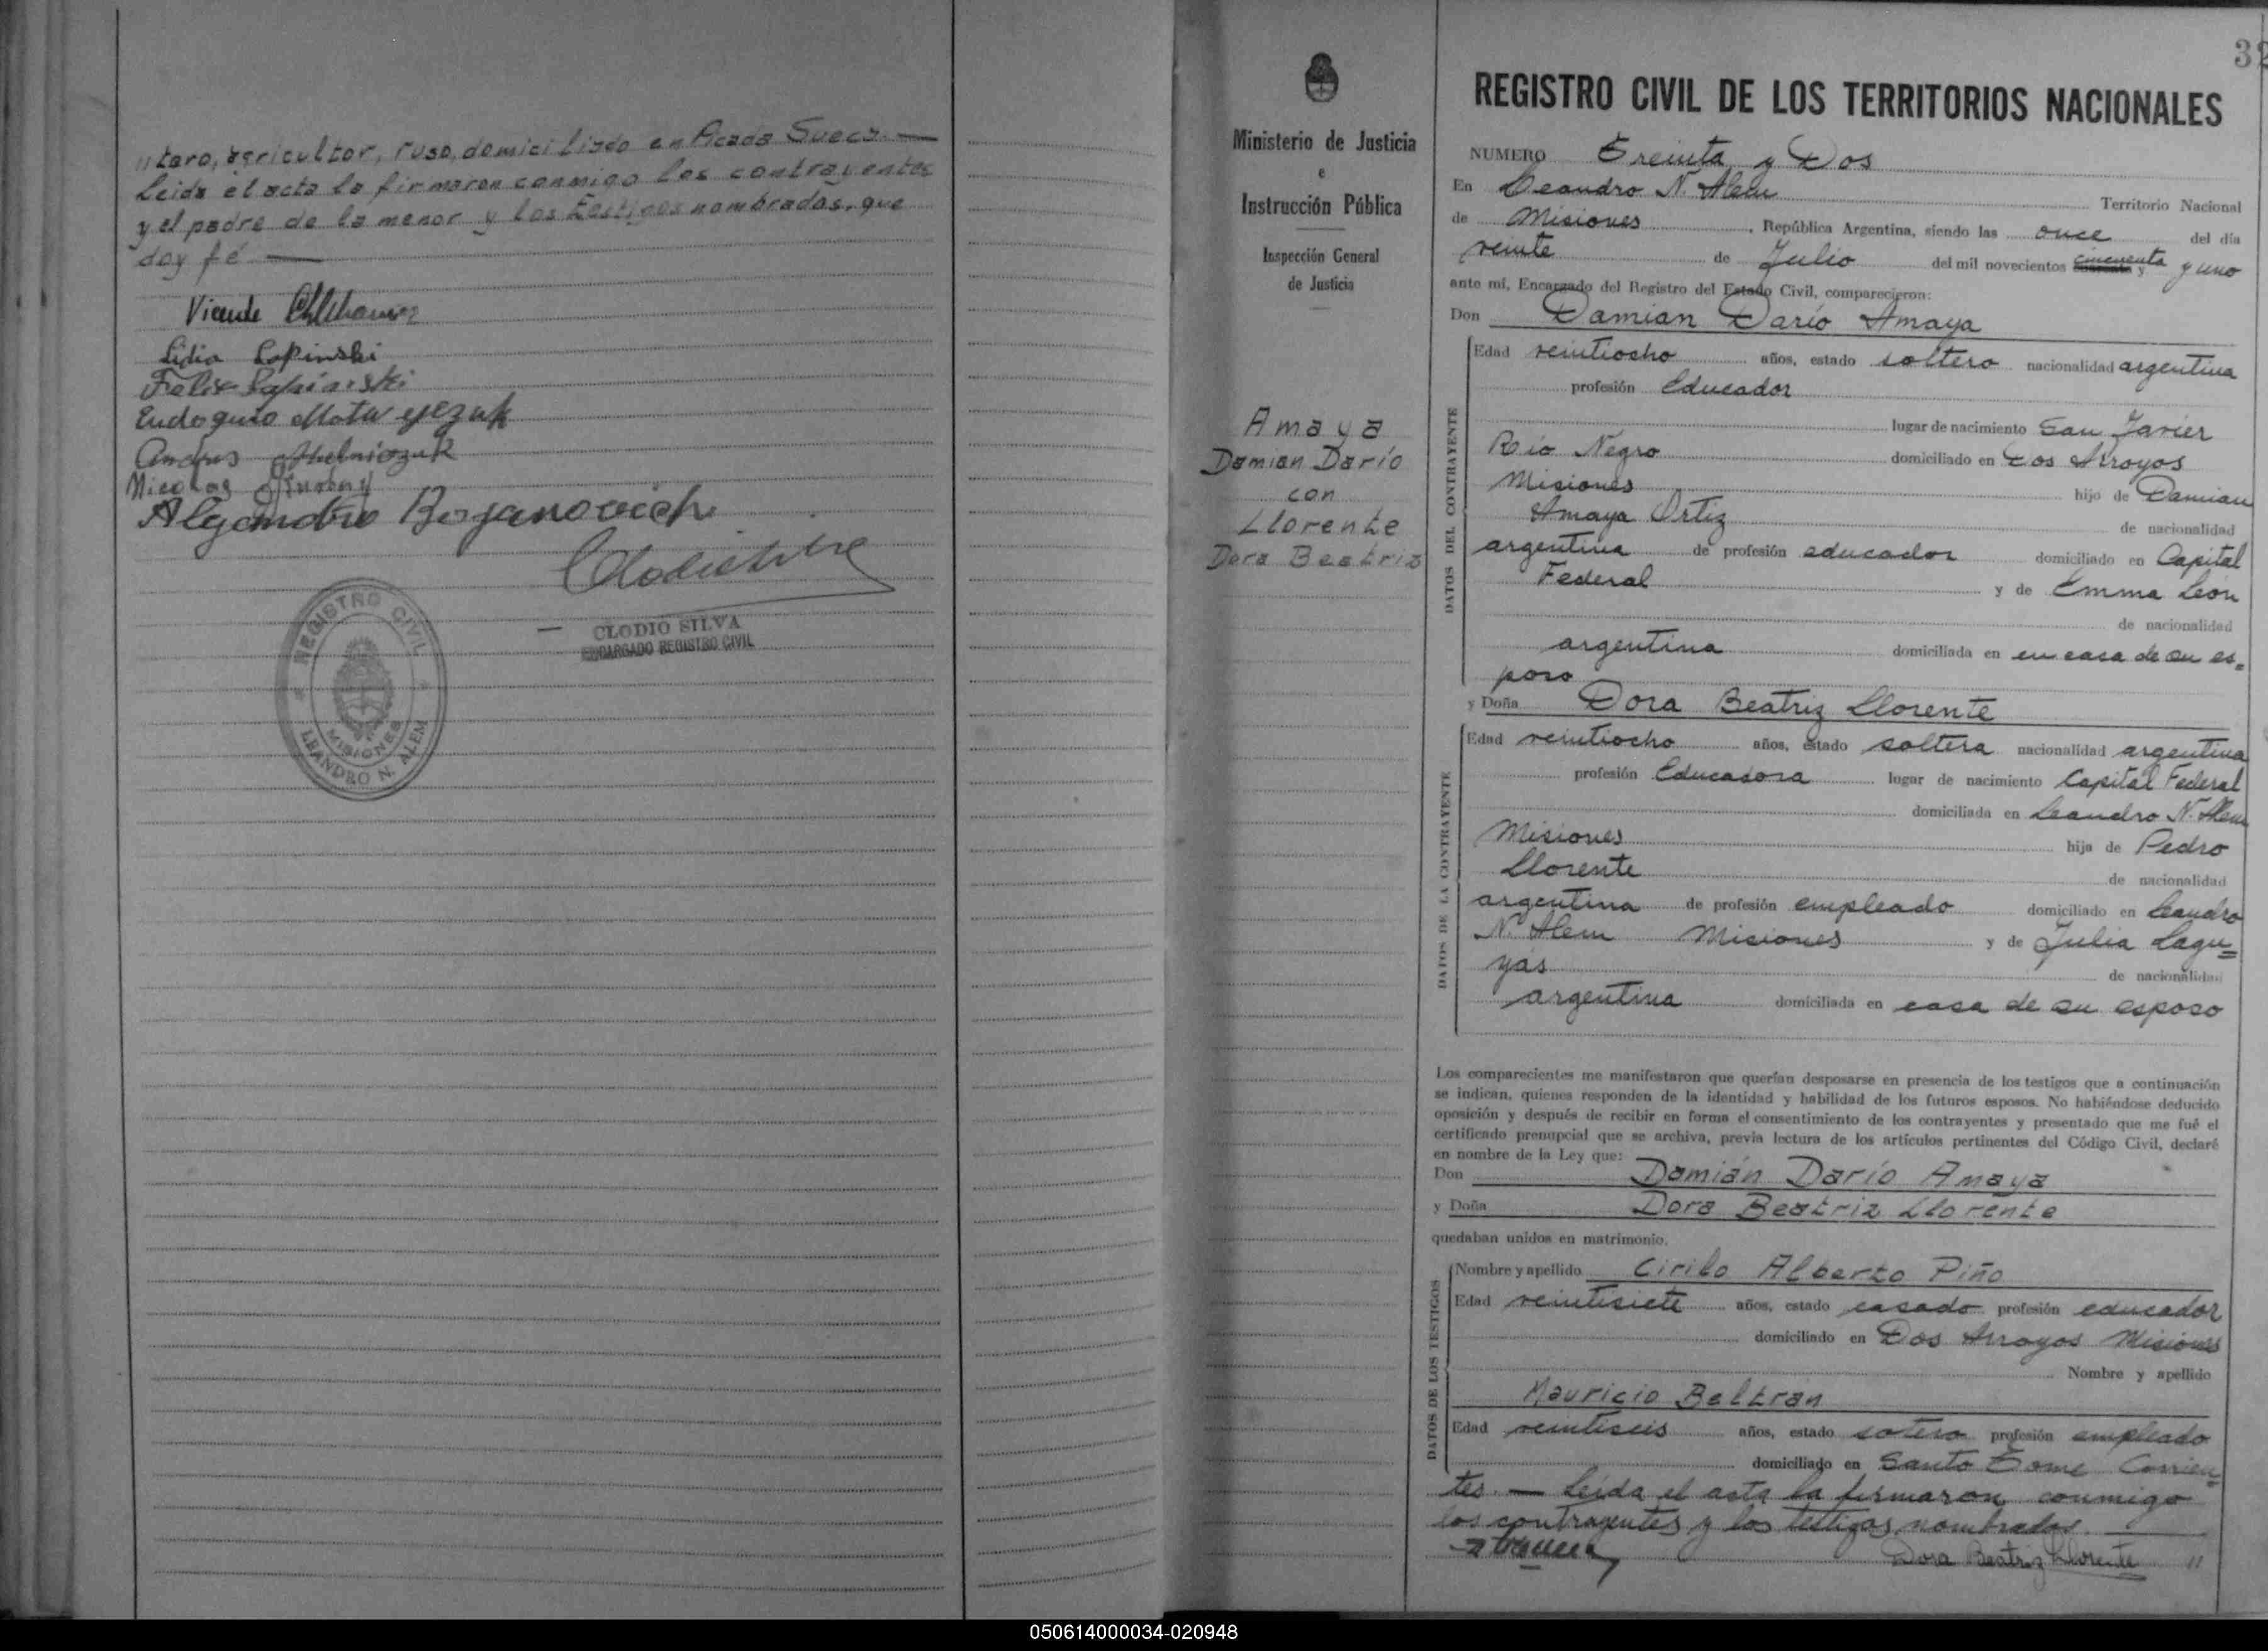 "tero, agricultor, ruso, domiciliado en Picada Sueca. —
Leida el acta la firmaron conmigo los contrayentes
y el padre de la menor y los testigos nombrados, que
doy fé —
Vicente
Lidia Lapinski
Felix Lapinski
Alejandro Bojanovich
CLODIO SILVA
ENCARGADO REGISTRO CIVIL
REGISTRO CIVIL
MISIONES
LEANDRO N. ALEM
32
Ministerio de Justicia
e
Instrucción Pública
Inspección General
de Justicia
Amaya
Damian Darío
con
Llorente
Dora Beatriz
REGISTRO CIVIL DE LOS TERRITORIOS NACIONALES
NUMERO Treinta y Dos
En Leandro N. Alem Territorio Nacional
de Misiones, República Argentina, siendo las once del día
veinte de Julio del mil novecientos cincuenta y uno
ante mí, Encargado del Registro del Estado Civil, comparecieron:
Don Damian Darío Amaya
DATOS DEL CONTRAYENTE
Edad veintiocho años, estado soltero nacionalidad argentina
profesión Educador
lugar de nacimiento San Javier
Río Negro domiciliado en Dos Arroyos
Misiones hijo de Damian
Amaya Ortiz de nacionalidad
argentina de profesión educador domiciliado en Capital
Federal y de Emma León
de nacionalidad
argentina domiciliada en en casa de su es=
poso
y Doña Dora Beatriz Llorente
DATOS DE LA CONTRAYENTE
Edad veintiocho años, estado soltera nacionalidad argentina
profesión Educadora lugar de nacimiento Capital Federal
domiciliada en Leandro N. Alem
Misiones hija de Pedro
Llorente de nacionalidad
argentina de profesión empleado domiciliado en Leandro
N. Alem Misiones y de Julia Lagu=
yas de nacionalidad
argentina domiciliada en casa de su esposo
Los comparecientes me manifestaron que querían desposarse en presencia de los testigos que a continuación
se indican, quienes responden de la identidad y habilidad de los futuros esposos. No habiéndose deducido
oposición y después de recibir en forma el consentimiento de los contrayentes y presentado que me fué el
certificado prenupcial que se archiva, previa lectura de los artículos pertinentes del Código Civil, declaré
en nombre de la Ley que:
Don Damián Darío Amaya
y Doña Dora Beatriz Llorente
quedaban unidos en matrimonio.
DATOS DE LOS TESTIGOS
Nombre y apellido Cirilo Alberto Piño
Edad veintisiete años, estado casado profesión educador
domiciliado en Dos Arroyos Misiones
Nombre y apellido
Mauricio Beltrán
Edad veintiseis años, estado sotero profesión empleado
domiciliado en Santo Tome Corrien=
tes. — Leída el acta la firmaron conmigo
los contrayentes y los testigos nombrados. —
Dora Beatriz Llorente "
050614000034-020948